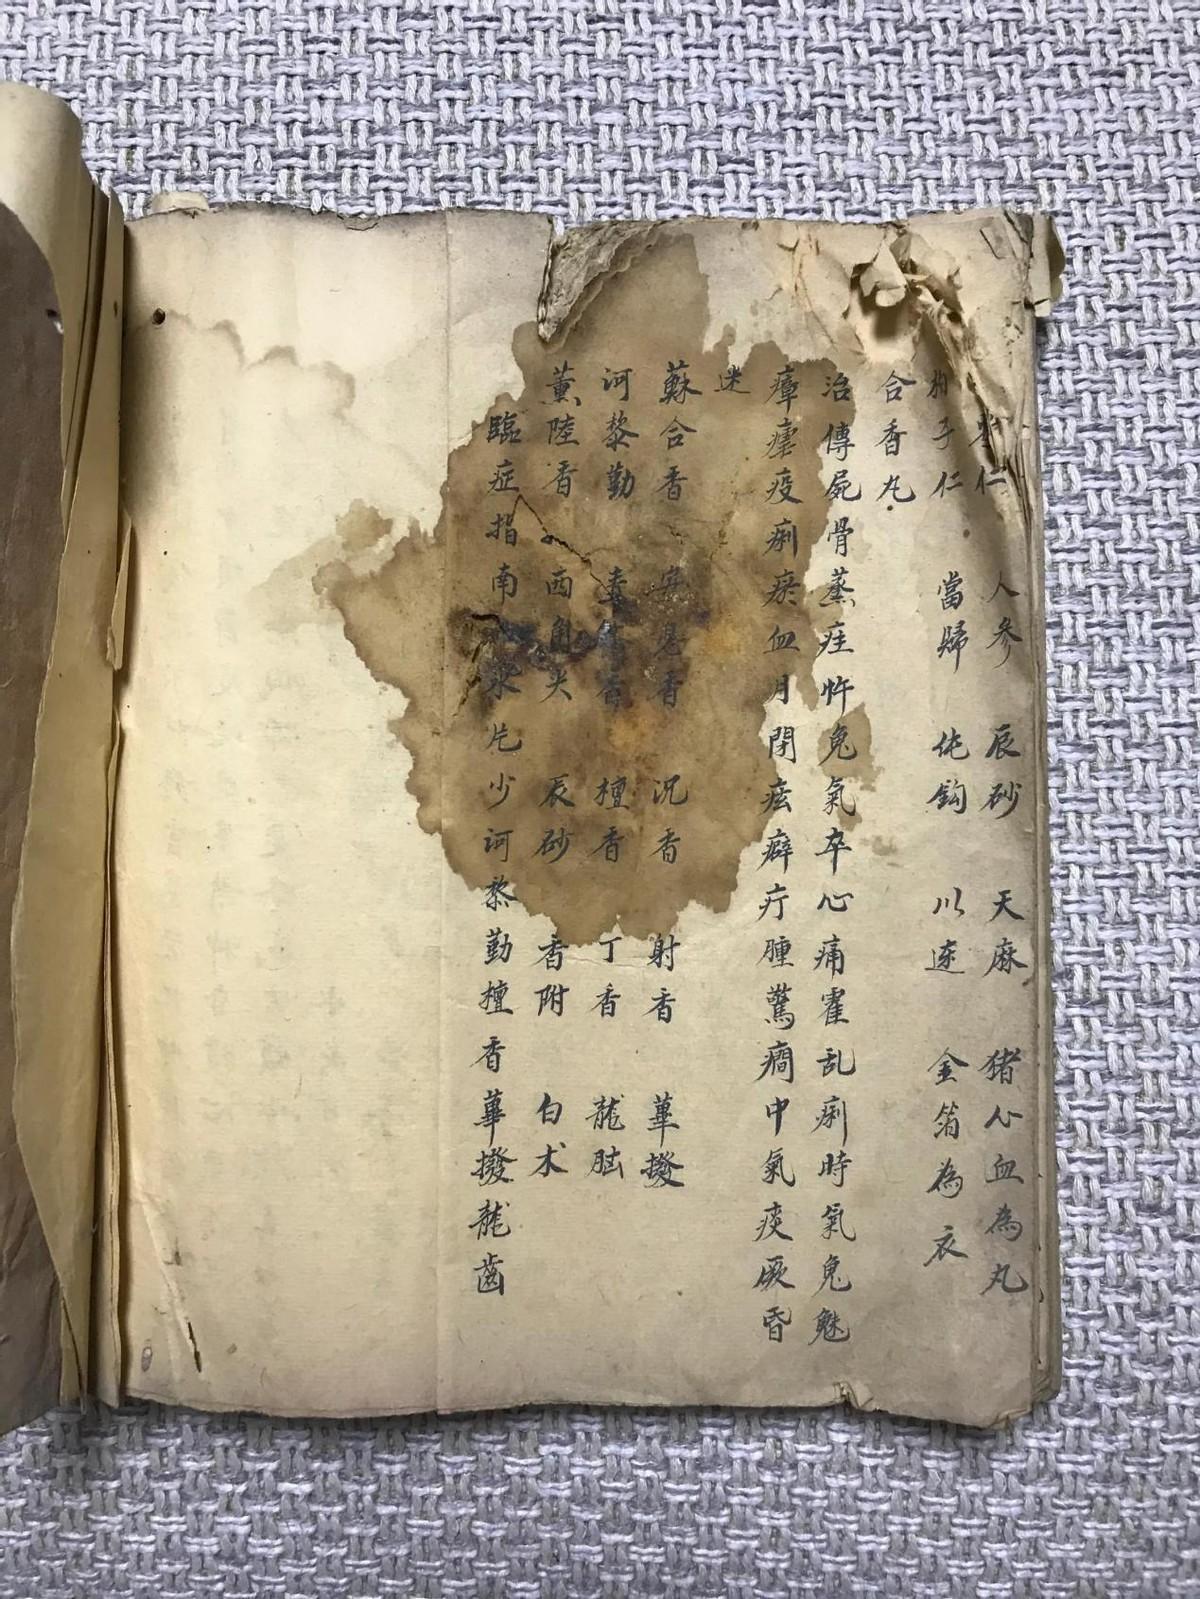 仁 人参 辰砂 天麻 猪心血為丸
子仁 當歸 鈎 川連 金箔為衣
合香丸
治傳屍骨蒸疰忤鬼氣卒心痛霍乱痢時氣鬼魅
瘴瘧疫痢瘀血月閉痃癖疔腫驚癇中氣痰厥昏
迷
蘇合香 安息香 沉香 射香 蓽撥
訶黎勤 香 檀香 丁香 龍腦
薰陸香 西角尖 辰砂 香附 白术
臨症指南 氷片少訶黎勤檀香蓽撥龍齒